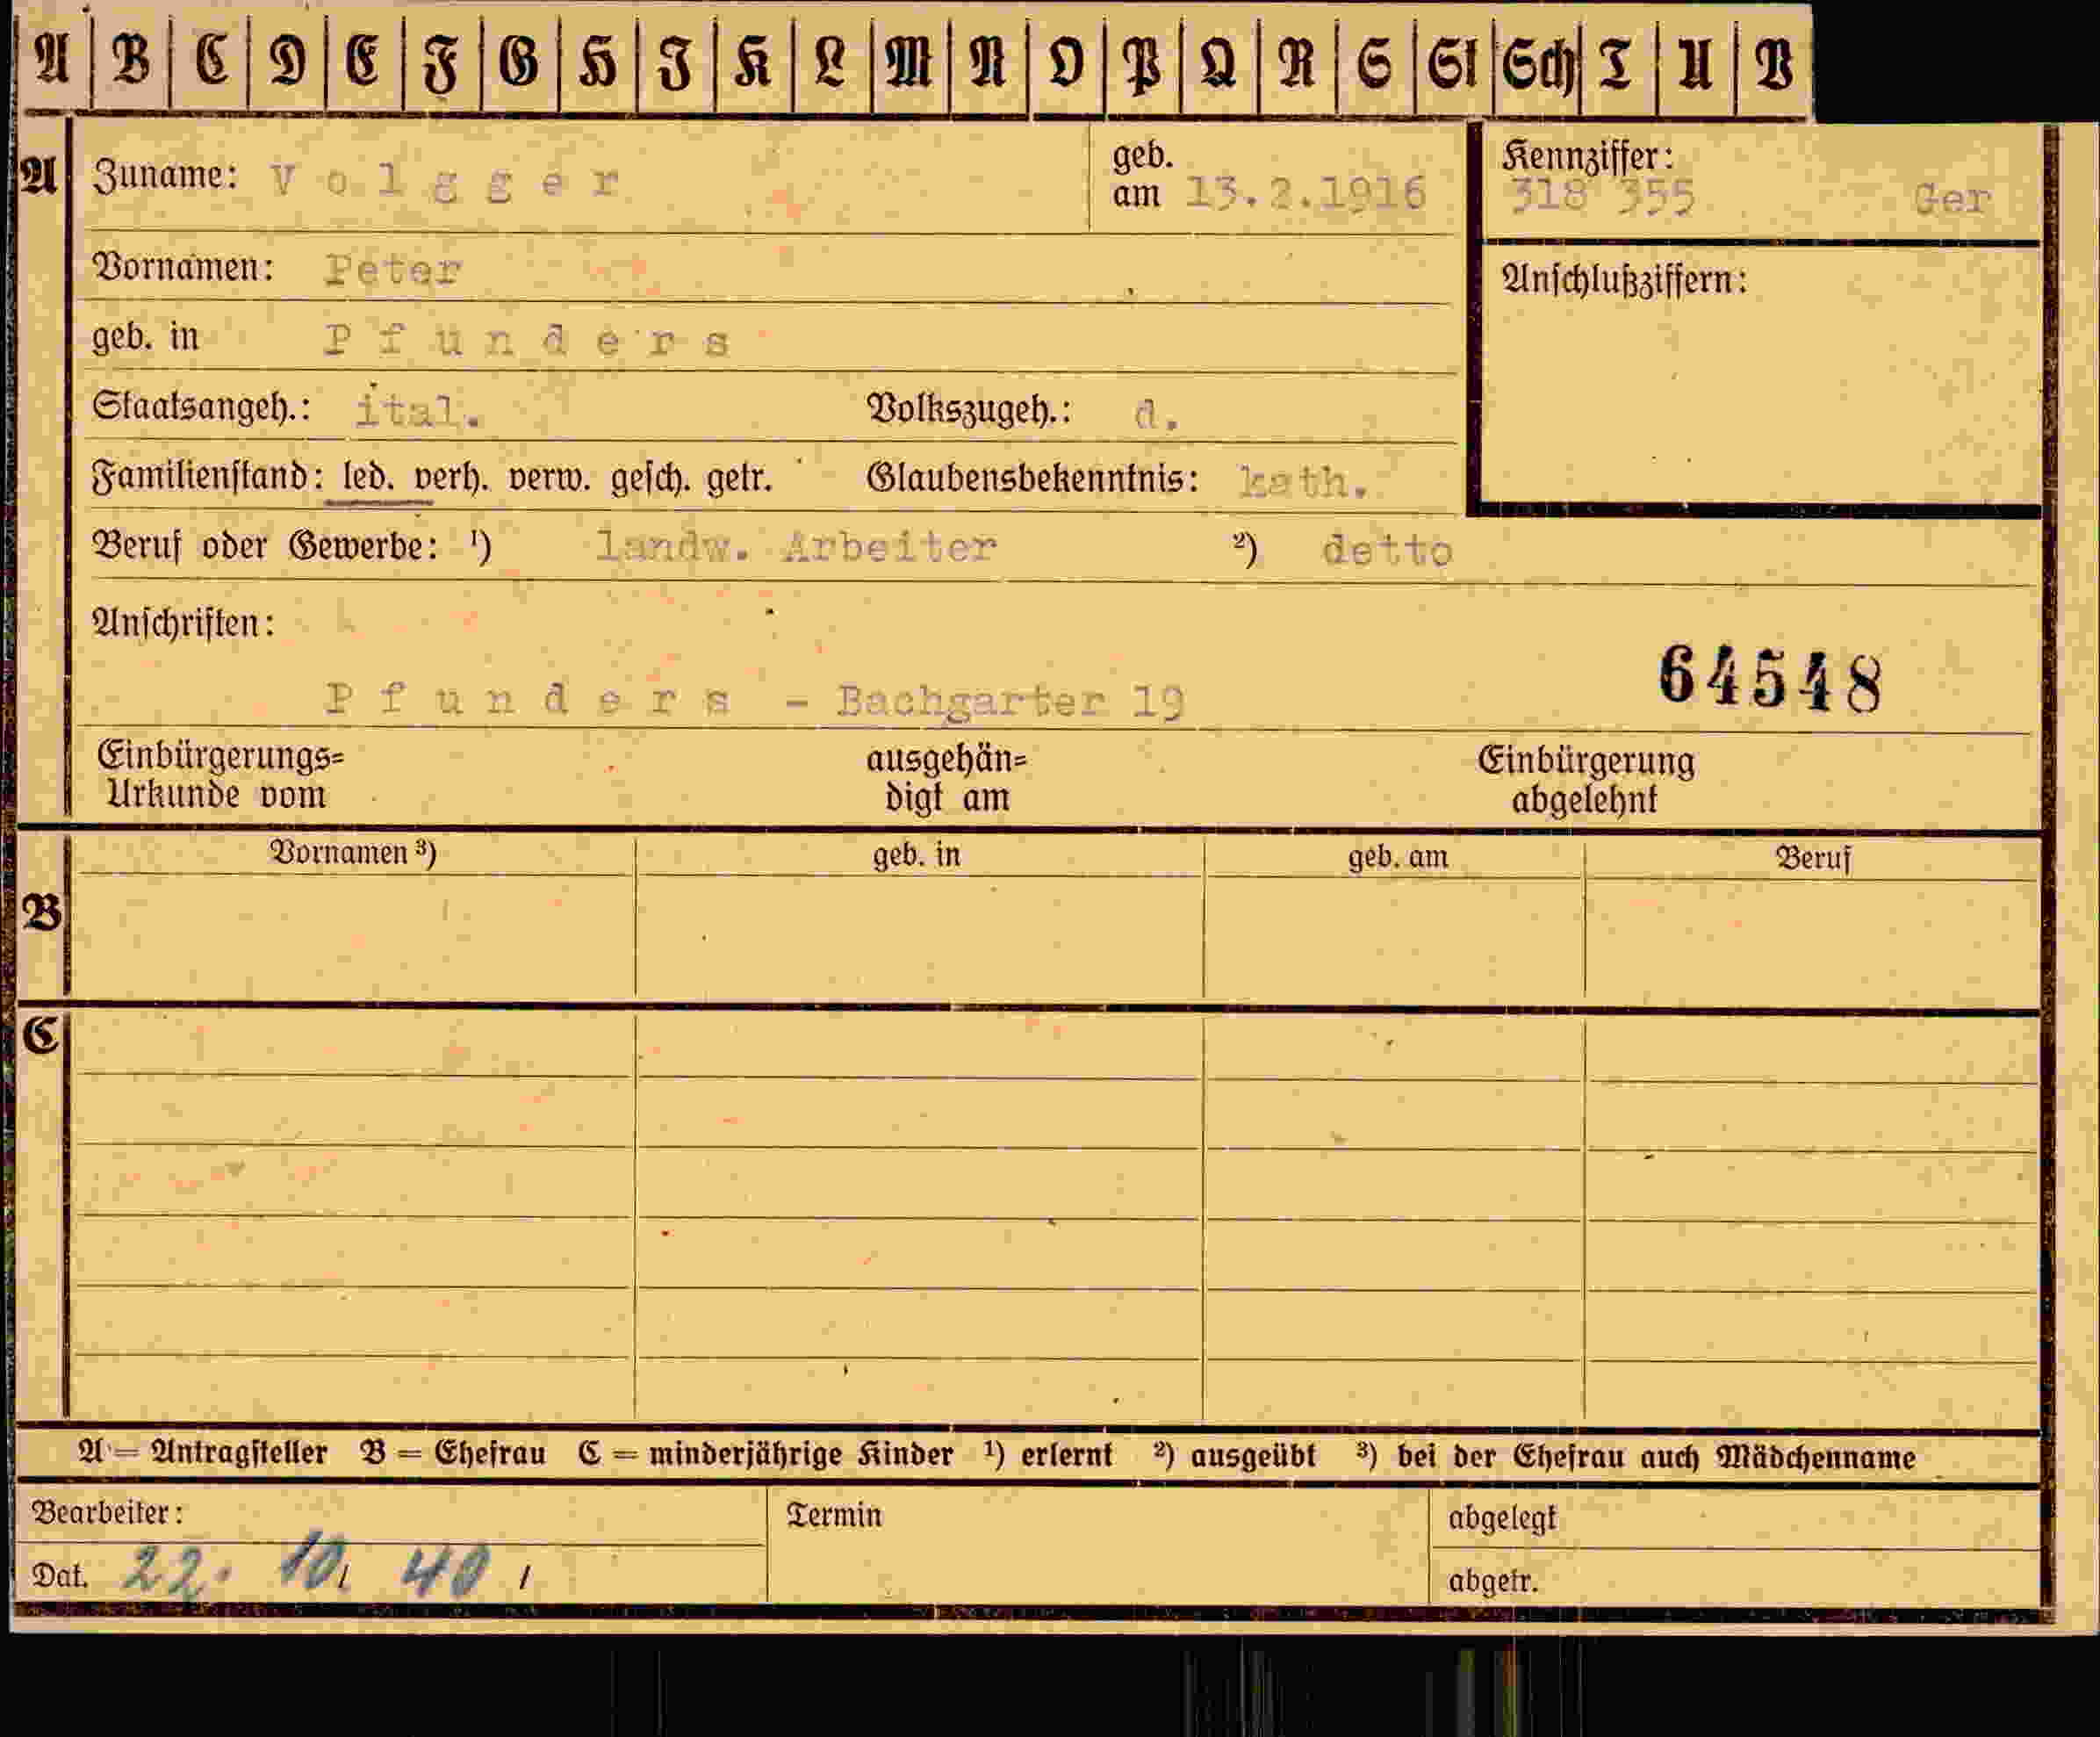 A B C D E F G H I K L M N O P Q R S St Sch T U V
A Zuname: V o l g g e r geb. am 13.2.1916 Kennziffer: 318 355 Ger
Vornamen: Peter Anschlußziffern:
geb. in P f u n d e r s
Staatsangeh.: ital. Volkszugeh.: d.
Familienstand: led. verh. verw. gesch. getr. Glaubensbekenntnis: kath.
Beruf oder Gewerbe: ¹) landw. Arbeiter ²) detto
Anschriften:
64548
P f u n d e r s - Bachgarter 19
Einbürgerungs= ausgehän= Einbürgerung
Urkunde vom digt am abgelehnt
B Vornamen ³) geb. in geb. am Beruf
C
A = Antragsteller B = Ehefrau C = minderjährige Kinder ¹) erlernt ²) ausgeübt ³) bei der Ehefrau auch Mädchenname
Bearbeiter: Termin abgelegt
Dat. 22. 10. 40 abgetr.